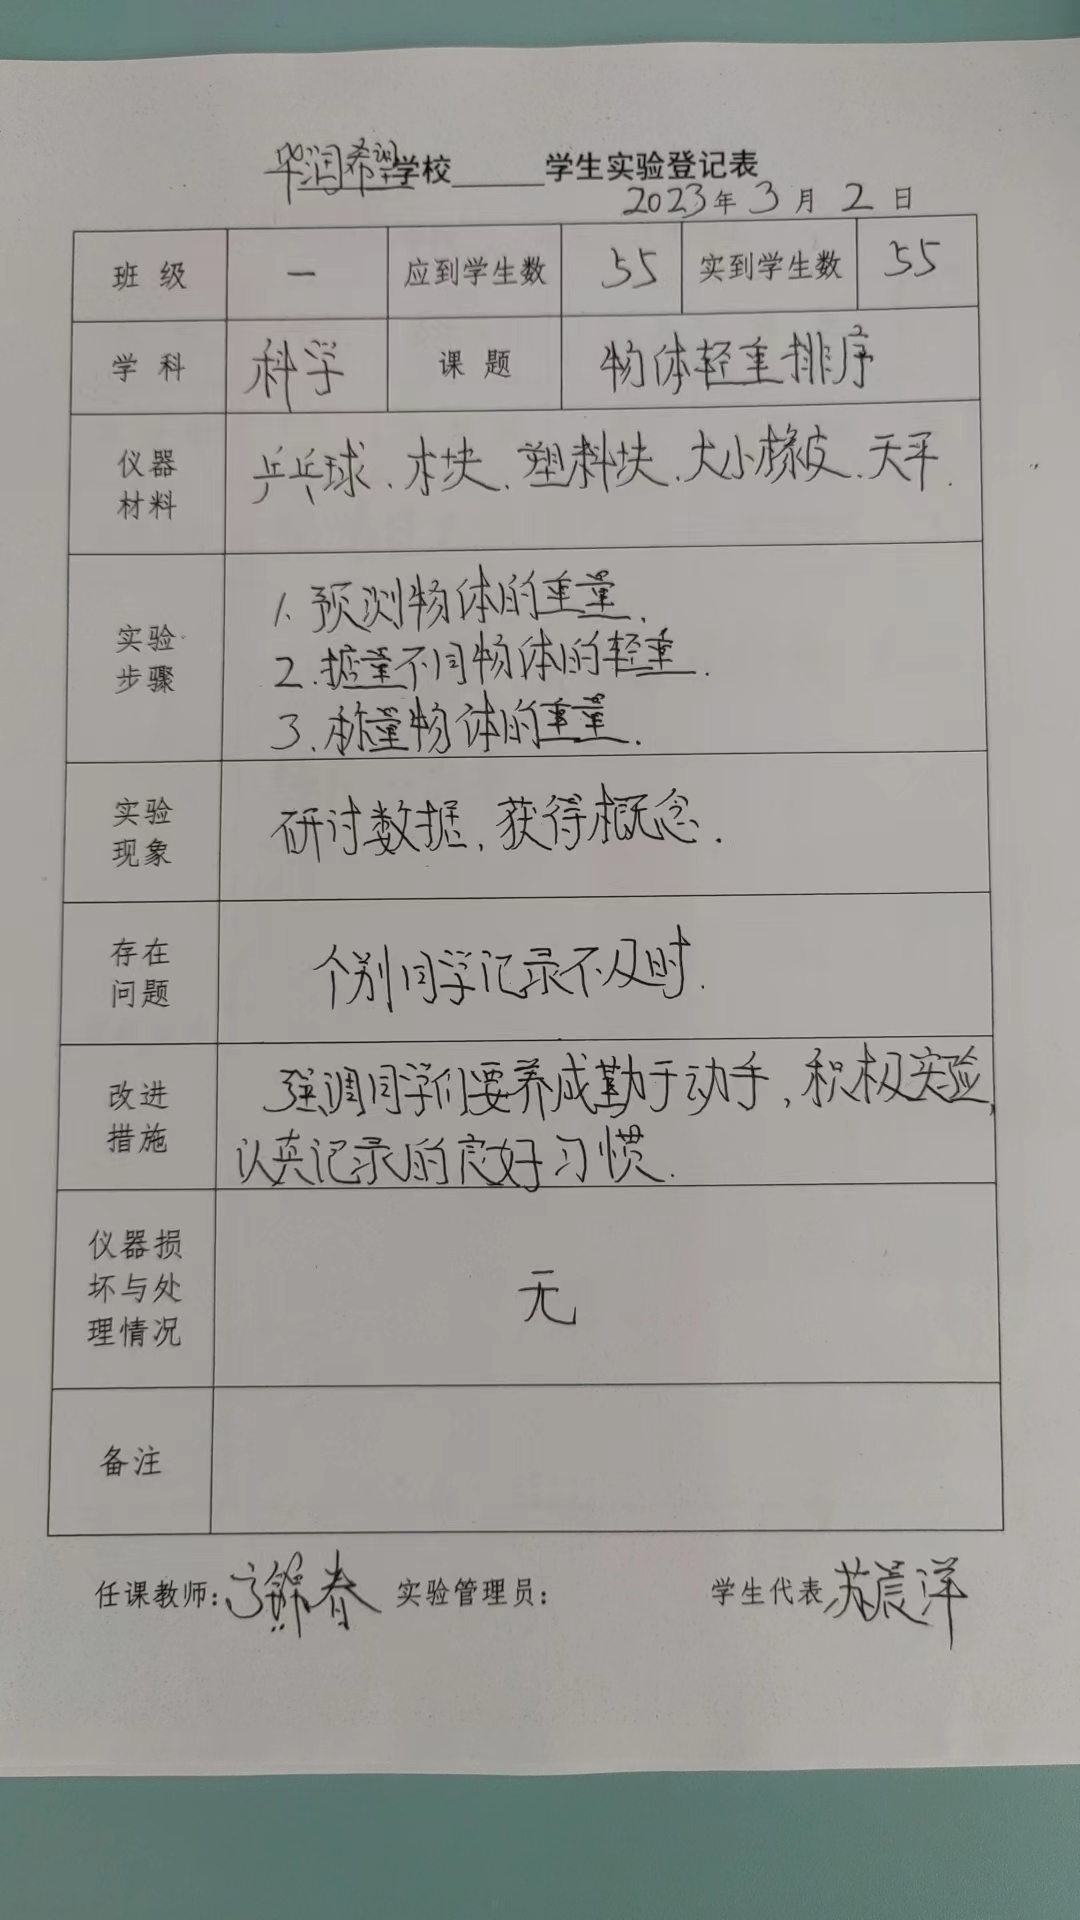 华润希望学校______学生实验登记表
2023年3月2日
班级 一 应到学生数 55 实到学生数 55
学科 科学 课题 物体轻重排序
仪器
材料
乒乓球、木块、塑料块、大小橡皮、天平.
实验
步骤
1.预测物体的重量.
2.掂量不同物体的轻重.
3.称量物体的重量.
实验
现象
研讨数据,获得概念.
存在
问题
个别同学记录不及时.
改进
措施
强调同学们要养成勤于动手,积极实验,
认真记录的良好习惯.
仪器损
坏与处
理情况
无
备注
任课教师: 实验管理员: 学生代表 苏晨洋